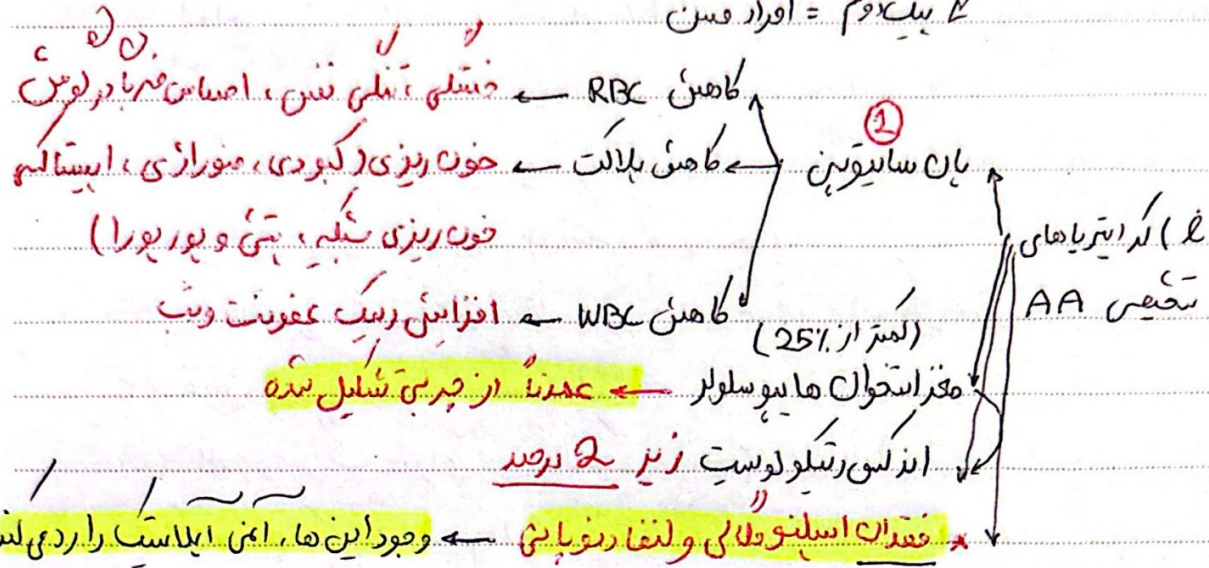 پیک دوم = افراد مسن
کاهش RBC ← خستگی، تنگی نفس، احساس ضربان در گوش
① پان سایتوپنی ← کاهش پلاکت ← خون ریزی (کبودی، منوراژی، اپیستاکسی
خون ریزی شبکیه، پتشی و پورپورا)
کرایتریاهای
تشخیصی AA
کاهش WBC ← افزایش ریسک عفونت و تب
(کمتر از 25%)
مغز استخوان هایپوسلولر ← عمدتاً از چربی تشکیل شده
اندکس رتیکولوسیت زیر 2 درصد
* فقدان اسپلنومگالی و لنفادنوپاتی ← وجود این ها، آنمی آپلاستیک را رد می کند